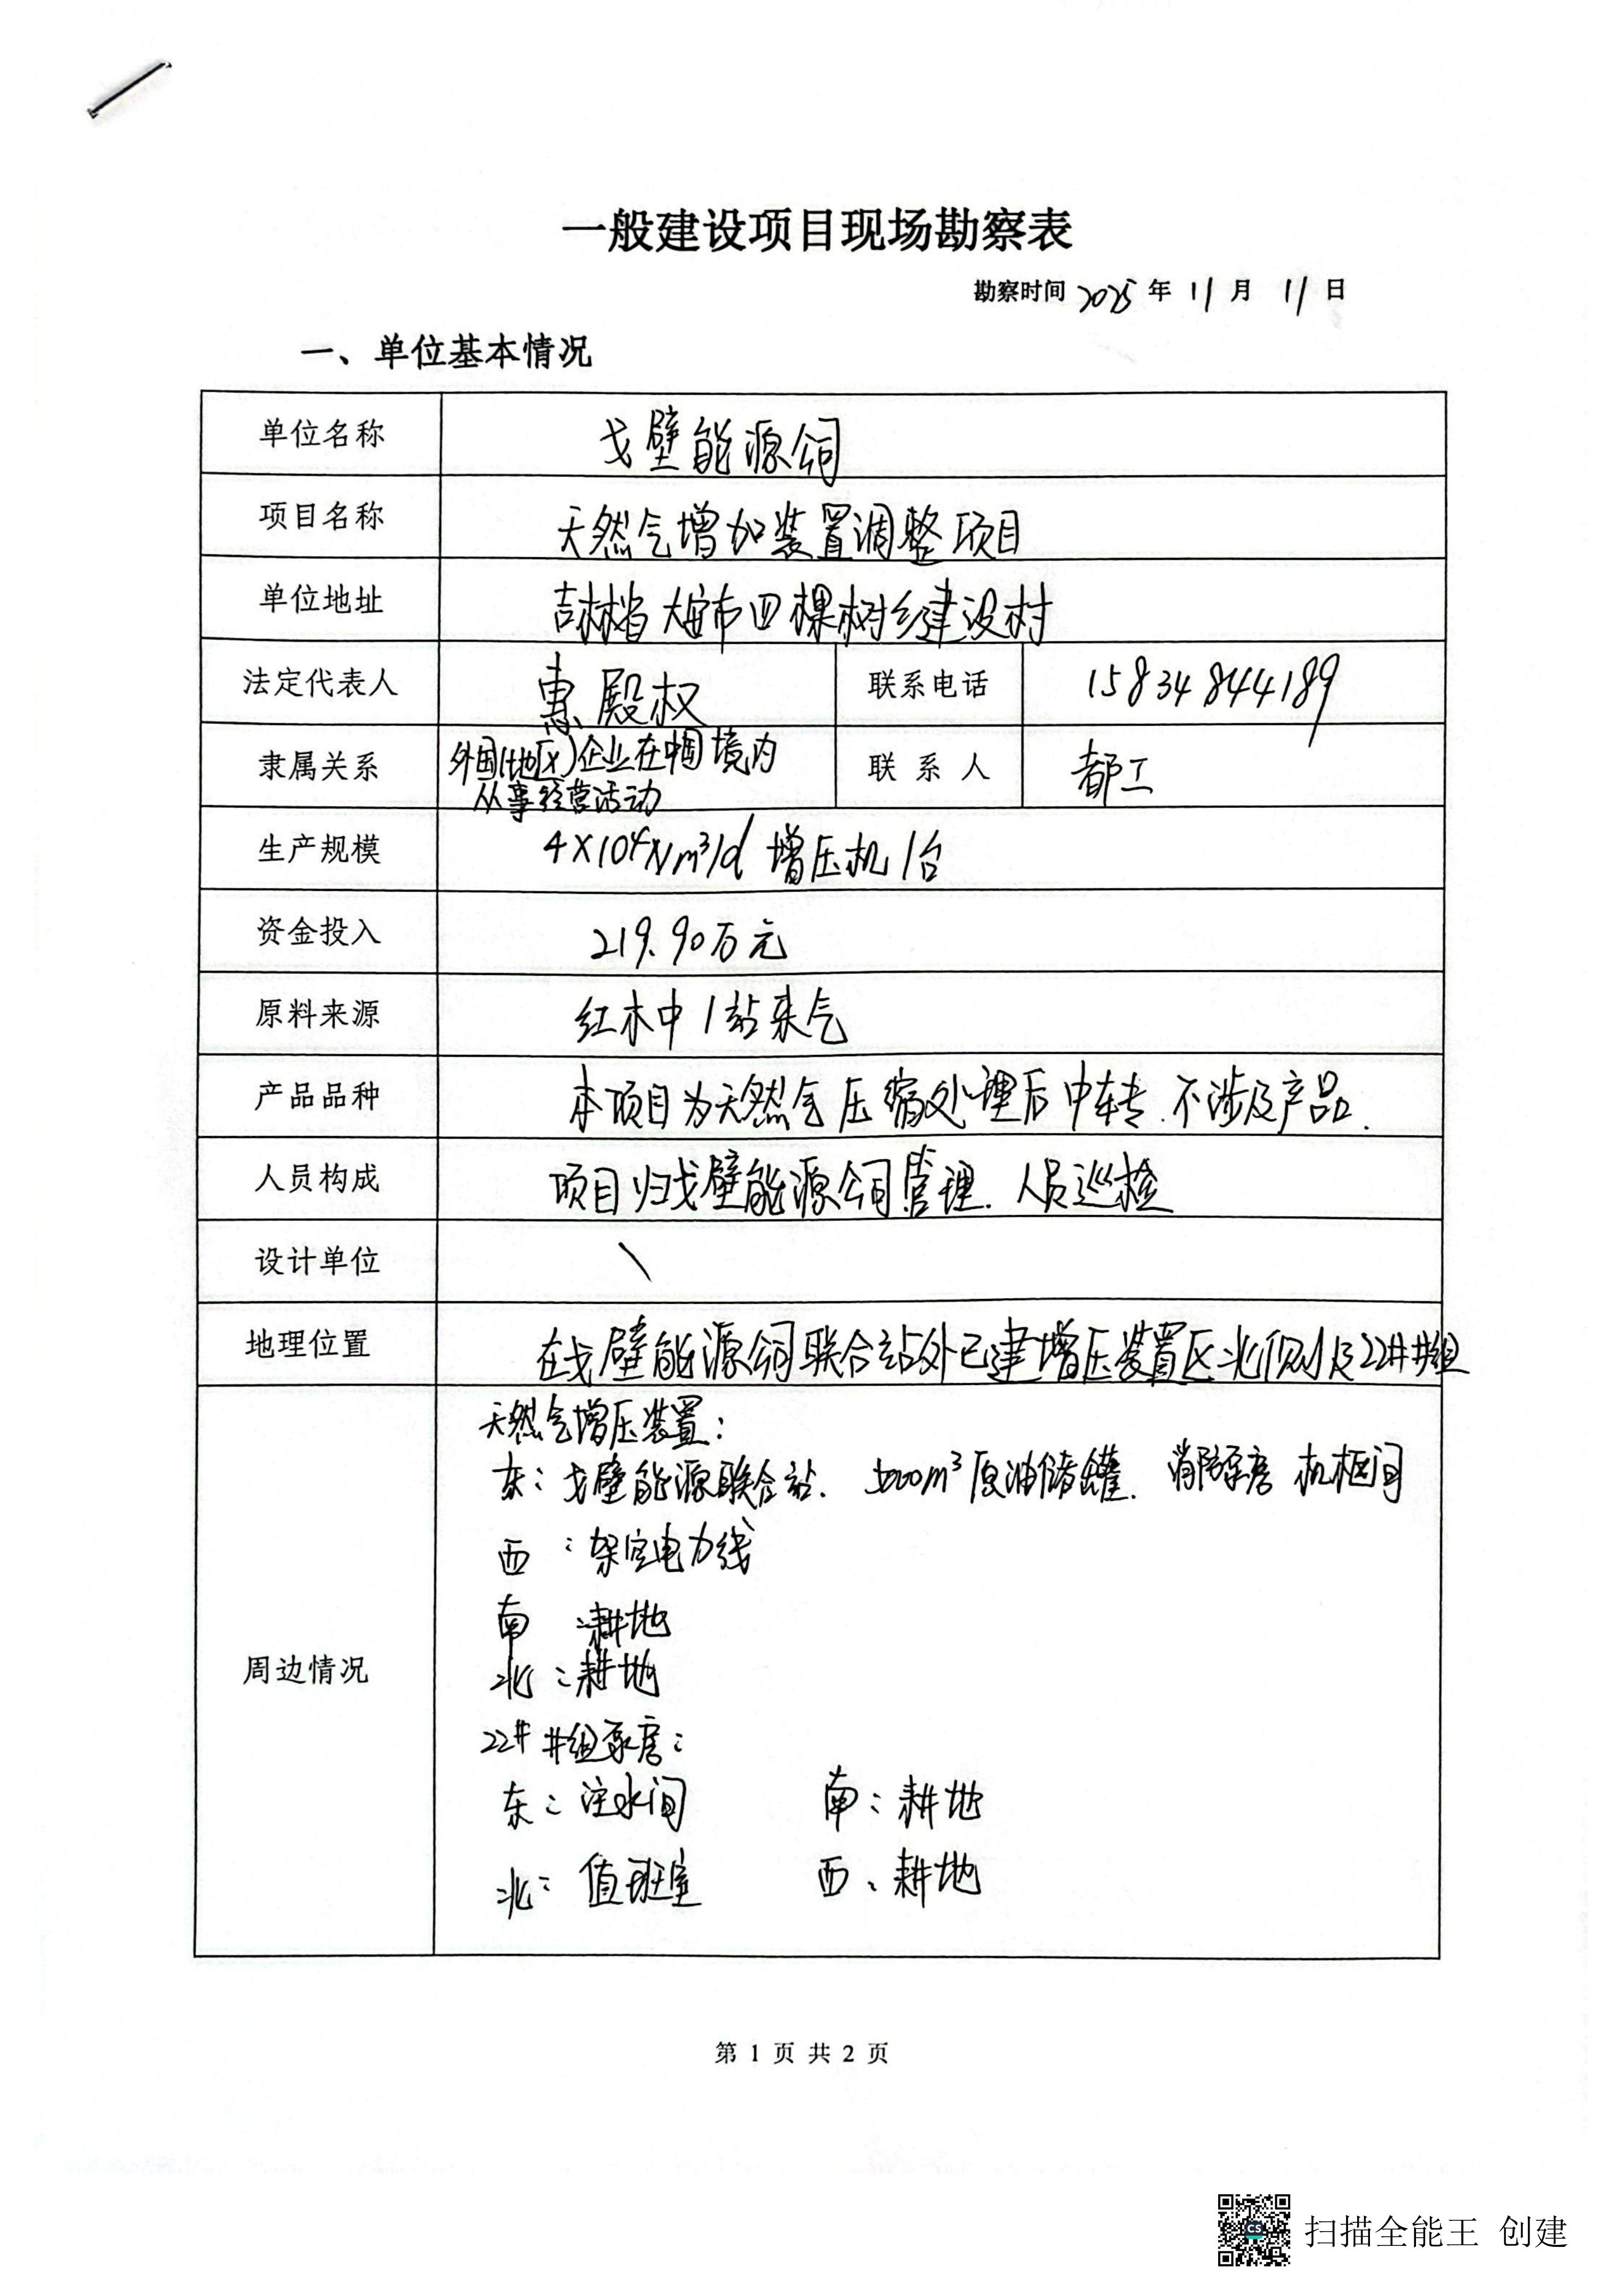 一般建设项目现场勘察表
勘察时间 2025 年 11 月 11 日
一、单位基本情况
单位名称 戈壁能源公司
项目名称 天然气增加装置调整项目
单位地址 吉林省大安市四棵树乡建设村
法定代表人 惠殿权 联系电话 15834844189
隶属关系 外国(地区)企业在中国境内
从事经营活动 联系人 都工
生产规模 4×10⁴Nm³/d 增压机1台
资金投入 219.90万元
原料来源 红木中1站来气
产品品种 本项目为天然气压缩处理后中转.不涉及产品.
人员构成 项目归戈壁能源公司管理.人员巡检
设计单位 \
地理位置 在戈壁能源公司联合站外已建增压装置区北侧及22#井组
周边情况
天然气增压装置:
东:戈壁能源联合站. 5000m³原油储罐. 消防泵房 机柜间
西:架空电力线
南:耕地
北:耕地
22#井组泵房:
东:注水间 南:耕地
北:值班室 西:耕地
第 1 页 共 2 页
扫描全能王 创建